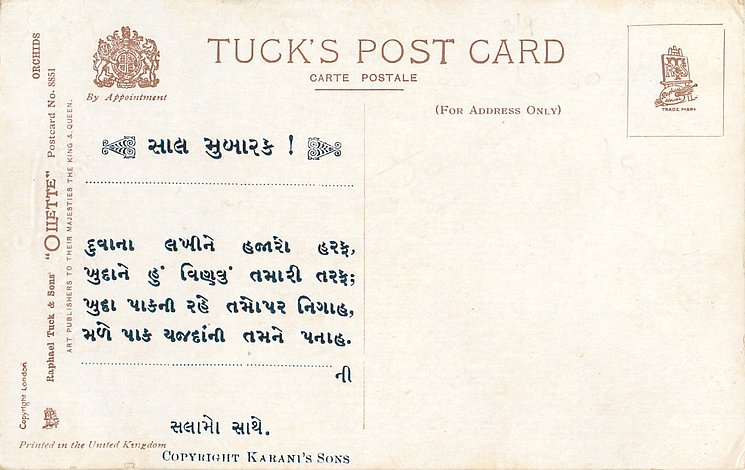 TUCK'S POST CARD
CARTE POSTALE
By Appointment
(FOR ADDRESS ONLY)
TRADE MARK
સાલ મુબારક !
દુવાના લખીને હજારો હરફ,
ખુદાને હું વિણવું તમારી તરફ;
ખુદા પાકની રહે તમોપર નિગાહ,
મળે પાક યજદાંની તમને પનાહ.
ની
સલામો સાથે.
COPYRIGHT KARANI'S SONS
Printed in the United Kingdom
Copyright London
Raphael Tuck & Sons' "OILETTE" Postcard No. 8851 ORCHIDS
ART PUBLISHERS TO THEIR MAJESTIES THE KING & QUEEN.